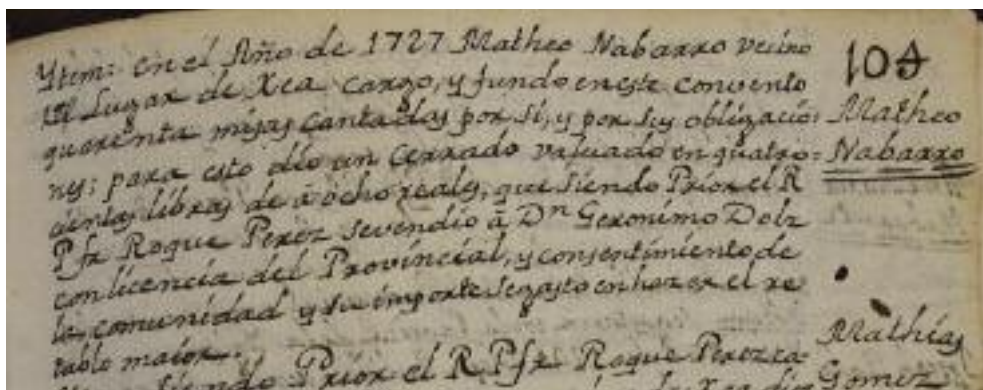 Ytem: en el Año de 1727 Matheo Nabarro vecino
del Lugar de Xea cargo, y fundo en este convento
quarenta misas cantadas por sí, y por sus obligacio:
nes: para esto dio un Cerrado valuado en quatro=
cientas libras de à ocho reales, que siendo Prior el R
P fr Roque Perez se vendio à Dn Geronimo Dolz
con licencia del Provincial, y consentimiento de
la comunidad y su importe se gasto en hazer el re
tablo maior.
siendo Prior el R. P. fr. Roque Perez
104
Matheo
Nabarro
Mathias
Gomez